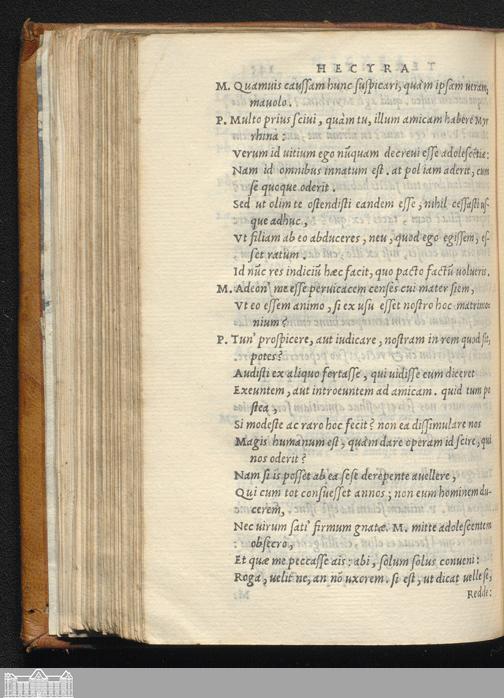 HECYRA
M. Quamuis cauſſam hunc ſuſpicari, quàm ipſam ueram,
mauolo.
P. Multo prius ſciui, quàm tu, illum amicam habere Myr
rhina:
Verum id uitium ego nũquam decreui eſſe adoleſcẽtiæ:
Nam id omnibus innatum eſt. at pol iam aderit, cum
ſe quoque oderit.
Sed ut olim te oſtendiſti eandem eſſe, nihil ceſſaſti uſ-
que adhuc,
Vt filiam ab eo abduceres, neu, quod ego egiſſem, eſ-
ſet ratum.
Id nũc res indiciũ hæc facit, quo pacto factũ uolueris.
M. Adeon' me eſſe peruicacem cenſes cui mater ſiem,
Vt eo eſſem animo, ſi ex uſu eſſet noſtro hoc matrimo
nium?
P. Tun' proſpicere, aut iudicare, noſtram in rem quod ſit,
potes?
Audiſti ex aliquo fortaſſe, qui uidiſſe eum diceret
Exeuntem, aut introeuntem ad amicam. quid tum po
ſtea,
Si modeſte ac raro hoc fecit? non ea diſſimulare nos
Magis humanum eſt, quàm dare operam id ſcire, qui
nos oderit?
Nam ſi is poſſet ab ea ſeſe derepente auellere,
Qui cum tot conſueſſet annos; non eum hominem du-
cerem,
Nec uirum ſati' firmum gnatæ. M. mitte adoleſcentem
obſecro,
Et quæ me peccaſſe ais: abi, ſolum ſolus conueni:
Roga, uelit ne, an nõ uxorem. ſi eſt, ut dicat uelle ſe,
Redde: